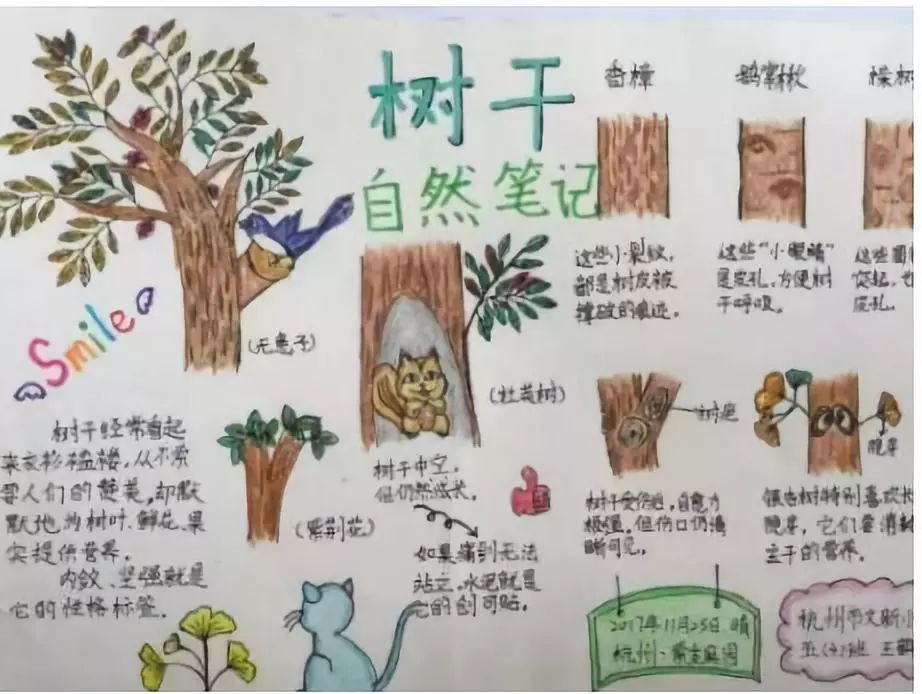 树干
自然笔记
Smile
(无患子)
树干经常看起
来衣衫褴褛,从不索
要人们的赞美,却默
默地为树叶、鲜花、果
实提供营养。
内敛、坚强就是
它的性格标签.
(紫荆花)
(杜英树)
树干中空,
但仍然成长。
如果痛到无法
站立,水泥就是
它的创可贴。
香樟
这些小裂纹,
都是树皮被
撑破的痕迹。
鹅掌楸
这些“小眼睛”
是皮孔,方便树
干呼吸。
这些圆
突起,也
皮孔。
树疤
树干受伤后,自愈力
极强,但伤口仍清
晰可见。
晚寿
银杏树特别喜欢
它们要消耗
主干的营养。
2017年11月25日 晴
杭州
杭州市文新小
五(4)班 王